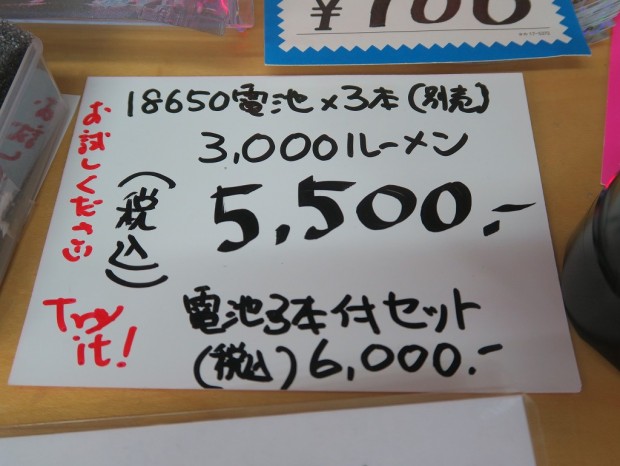 18650電池×3本(別売)
3,000ルーメン
5,500.-
(税込)
電池3本付セット
(税込)6,000.-
お試しください
Try
it!